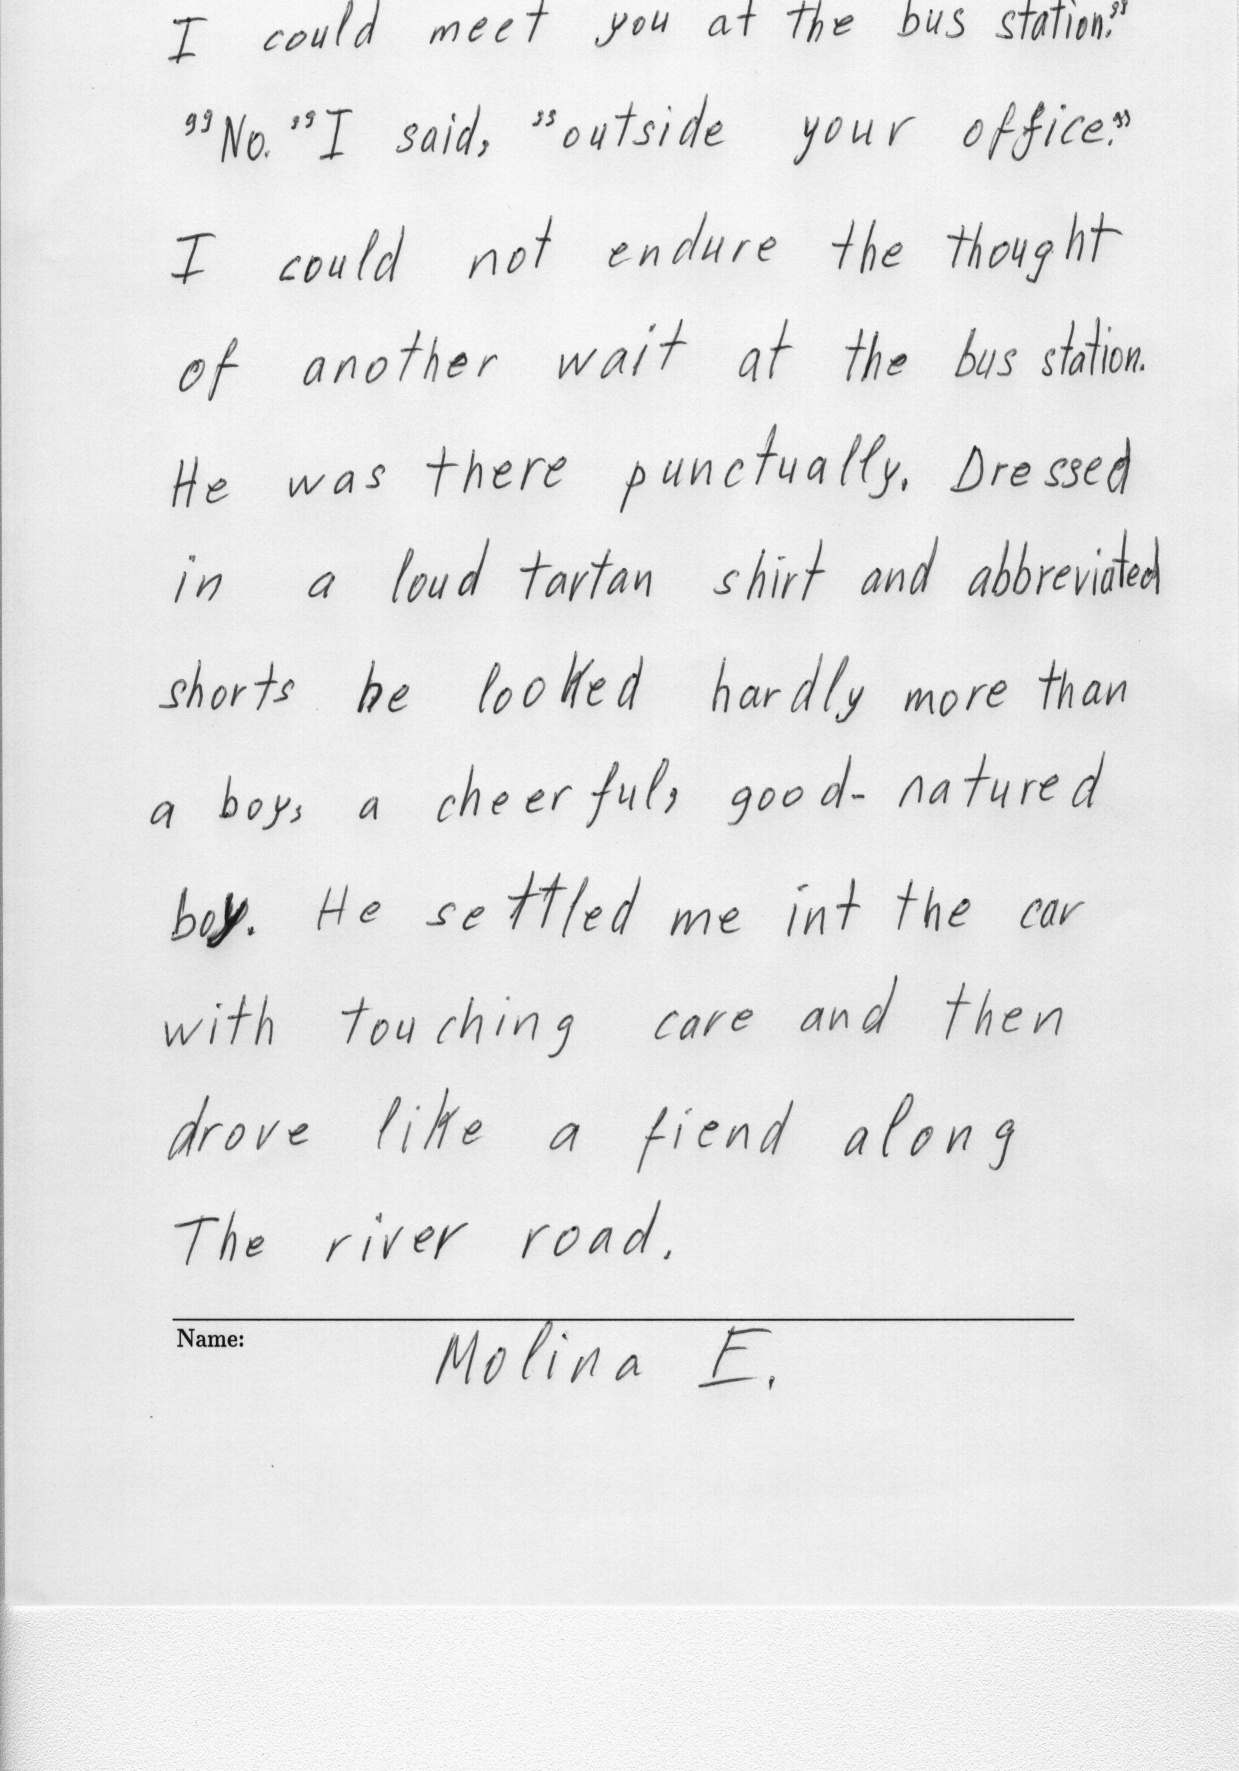 I could meet you at the bus station."
"No." I said, "outside your office."
I could not endure the thought
of another wait at the bus station.
He was there punctually. Dressed
in a loud tartan shirt and abbreviated
shorts he looked hardly more than
a boy, a cheerful, good-natured
boy. He settled me int the car
with touching care and then
drove like a fiend along
The river road.
Name:
Molina E.